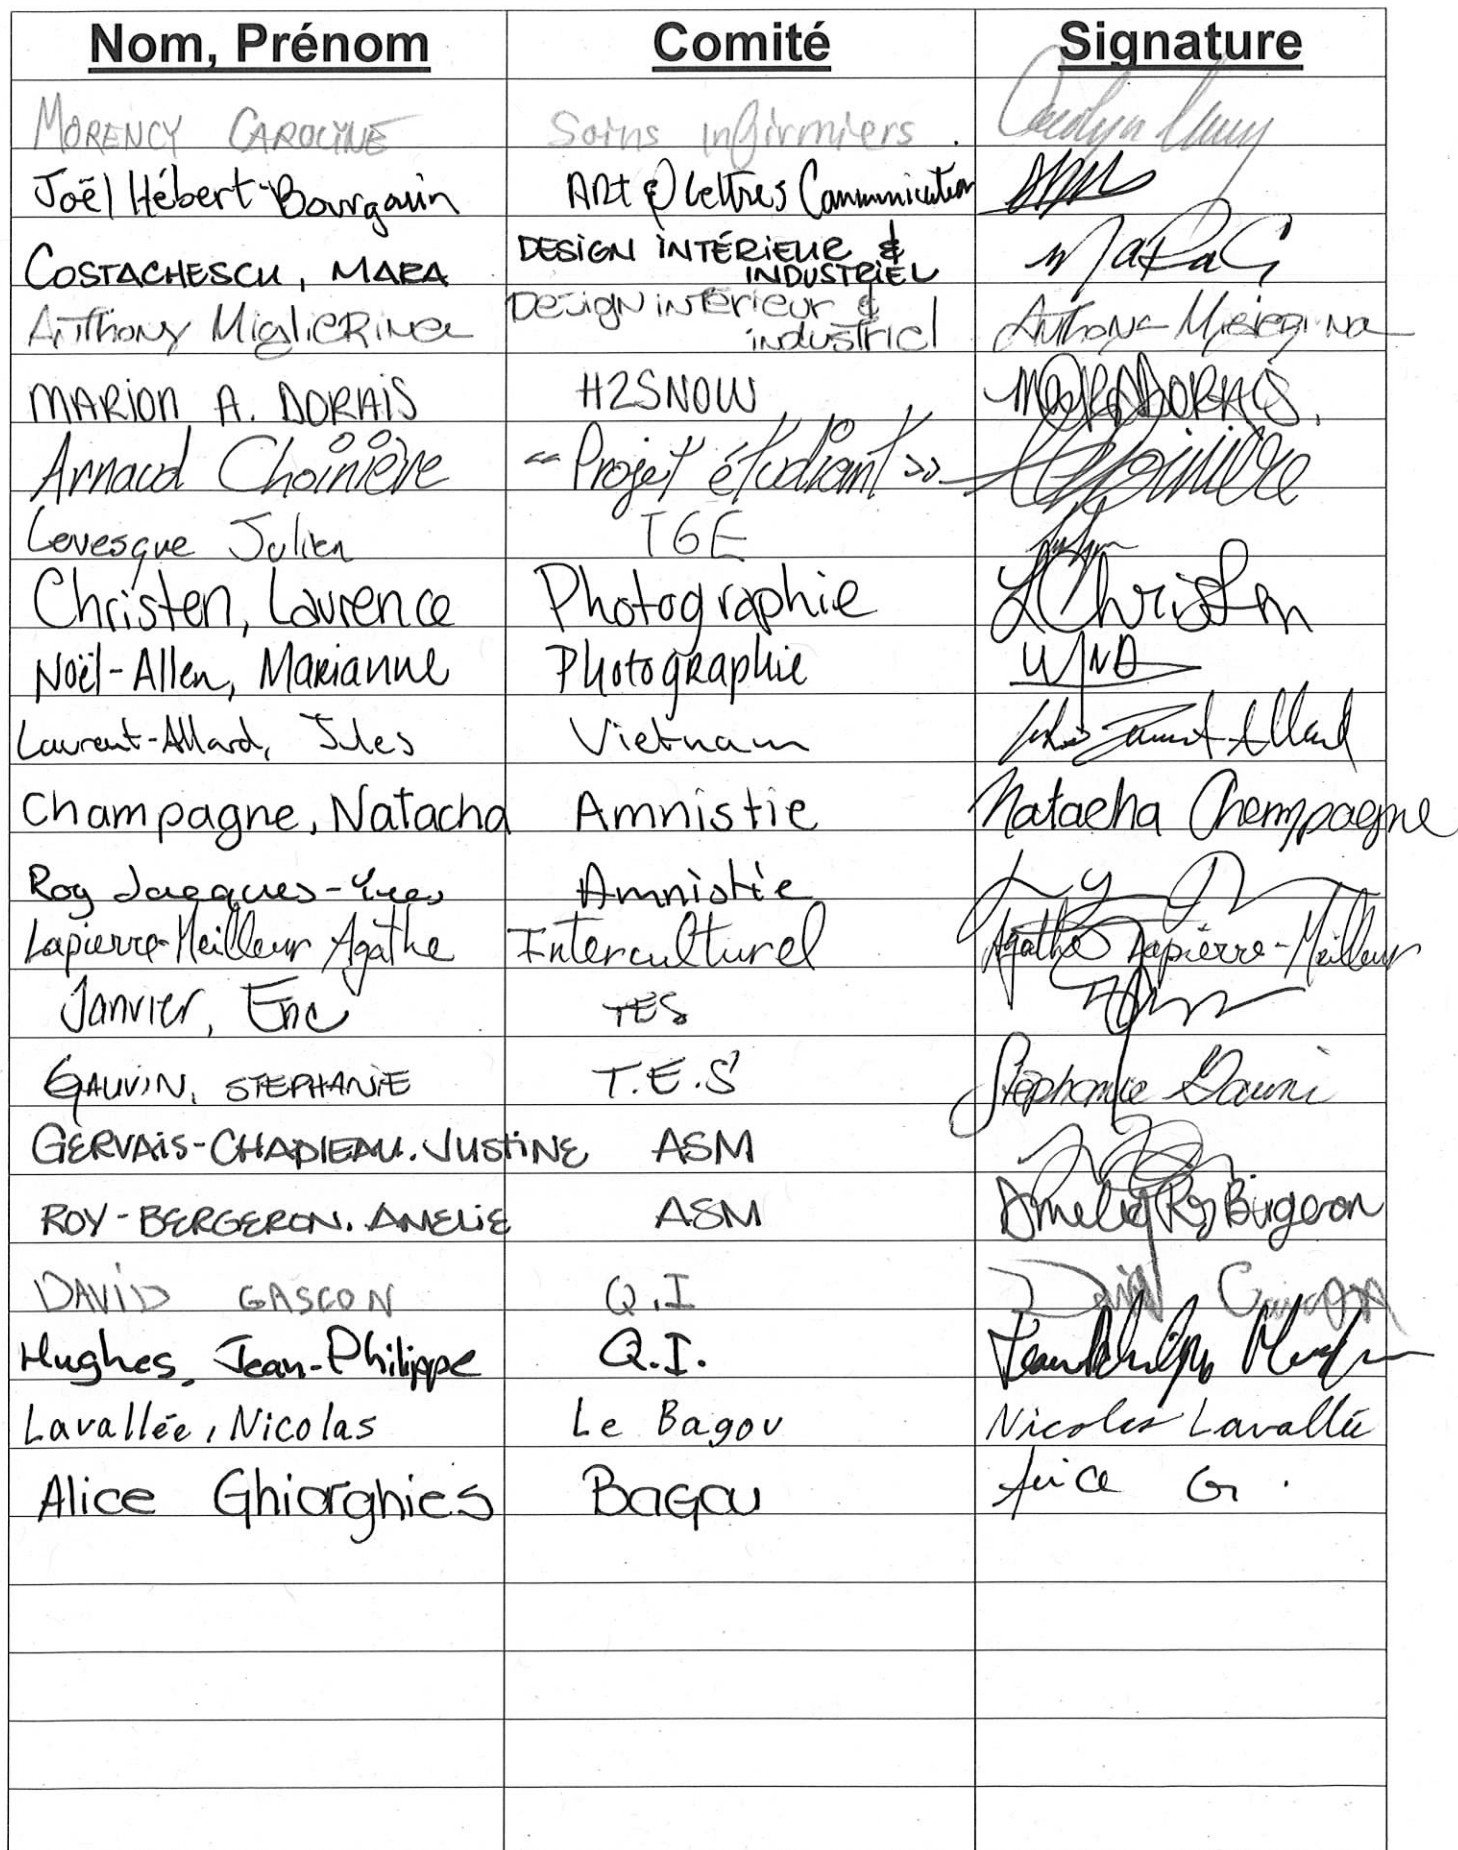 Nom, Prénom Comité Signature
MORENCY CAROLYNE Soins infirmiers.
Joël Hébert-Bourgouin Art & Lettres Communication
COSTACHESCU, MARA DESIGN INTÉRIEUR & INDUSTRIEL MaRaC
Anthony MigliERINa Design intérieur & industriel
MARION A. DORAIS H2SNOW
Arnaud Choinière "Projet étudiant" Choinière
Levesque Julien TGE
Christen, Laurence Photographie LChristen
Noël-Allen, Marianne Photographie MNA
Laurent-Allard, Jules Vietnam Jules Laurent-Allard
Champagne, Natacha Amnistie Natacha Champagne
Roy Jacques-Yves Amnistie
Lapierre-Meilleur Agathe Interculturel Agathe Lapierre-Meilleur
Janvier, Eric TES
GAUVIN, STEPHANIE T.E.S
GERVAIS-CHAPLEAU. JUSTINE ASM
ROY-BERGERON. AMELIE ASM Amelie Roy Bergeron
DAVID GASCON Q.I David
Hughes, Jean-Philippe Q.I. Jean-Philippe
Lavallée, Nicolas Le Bagou Nicolas Lavallée
Alice Ghiorghies Bagou Alice G.